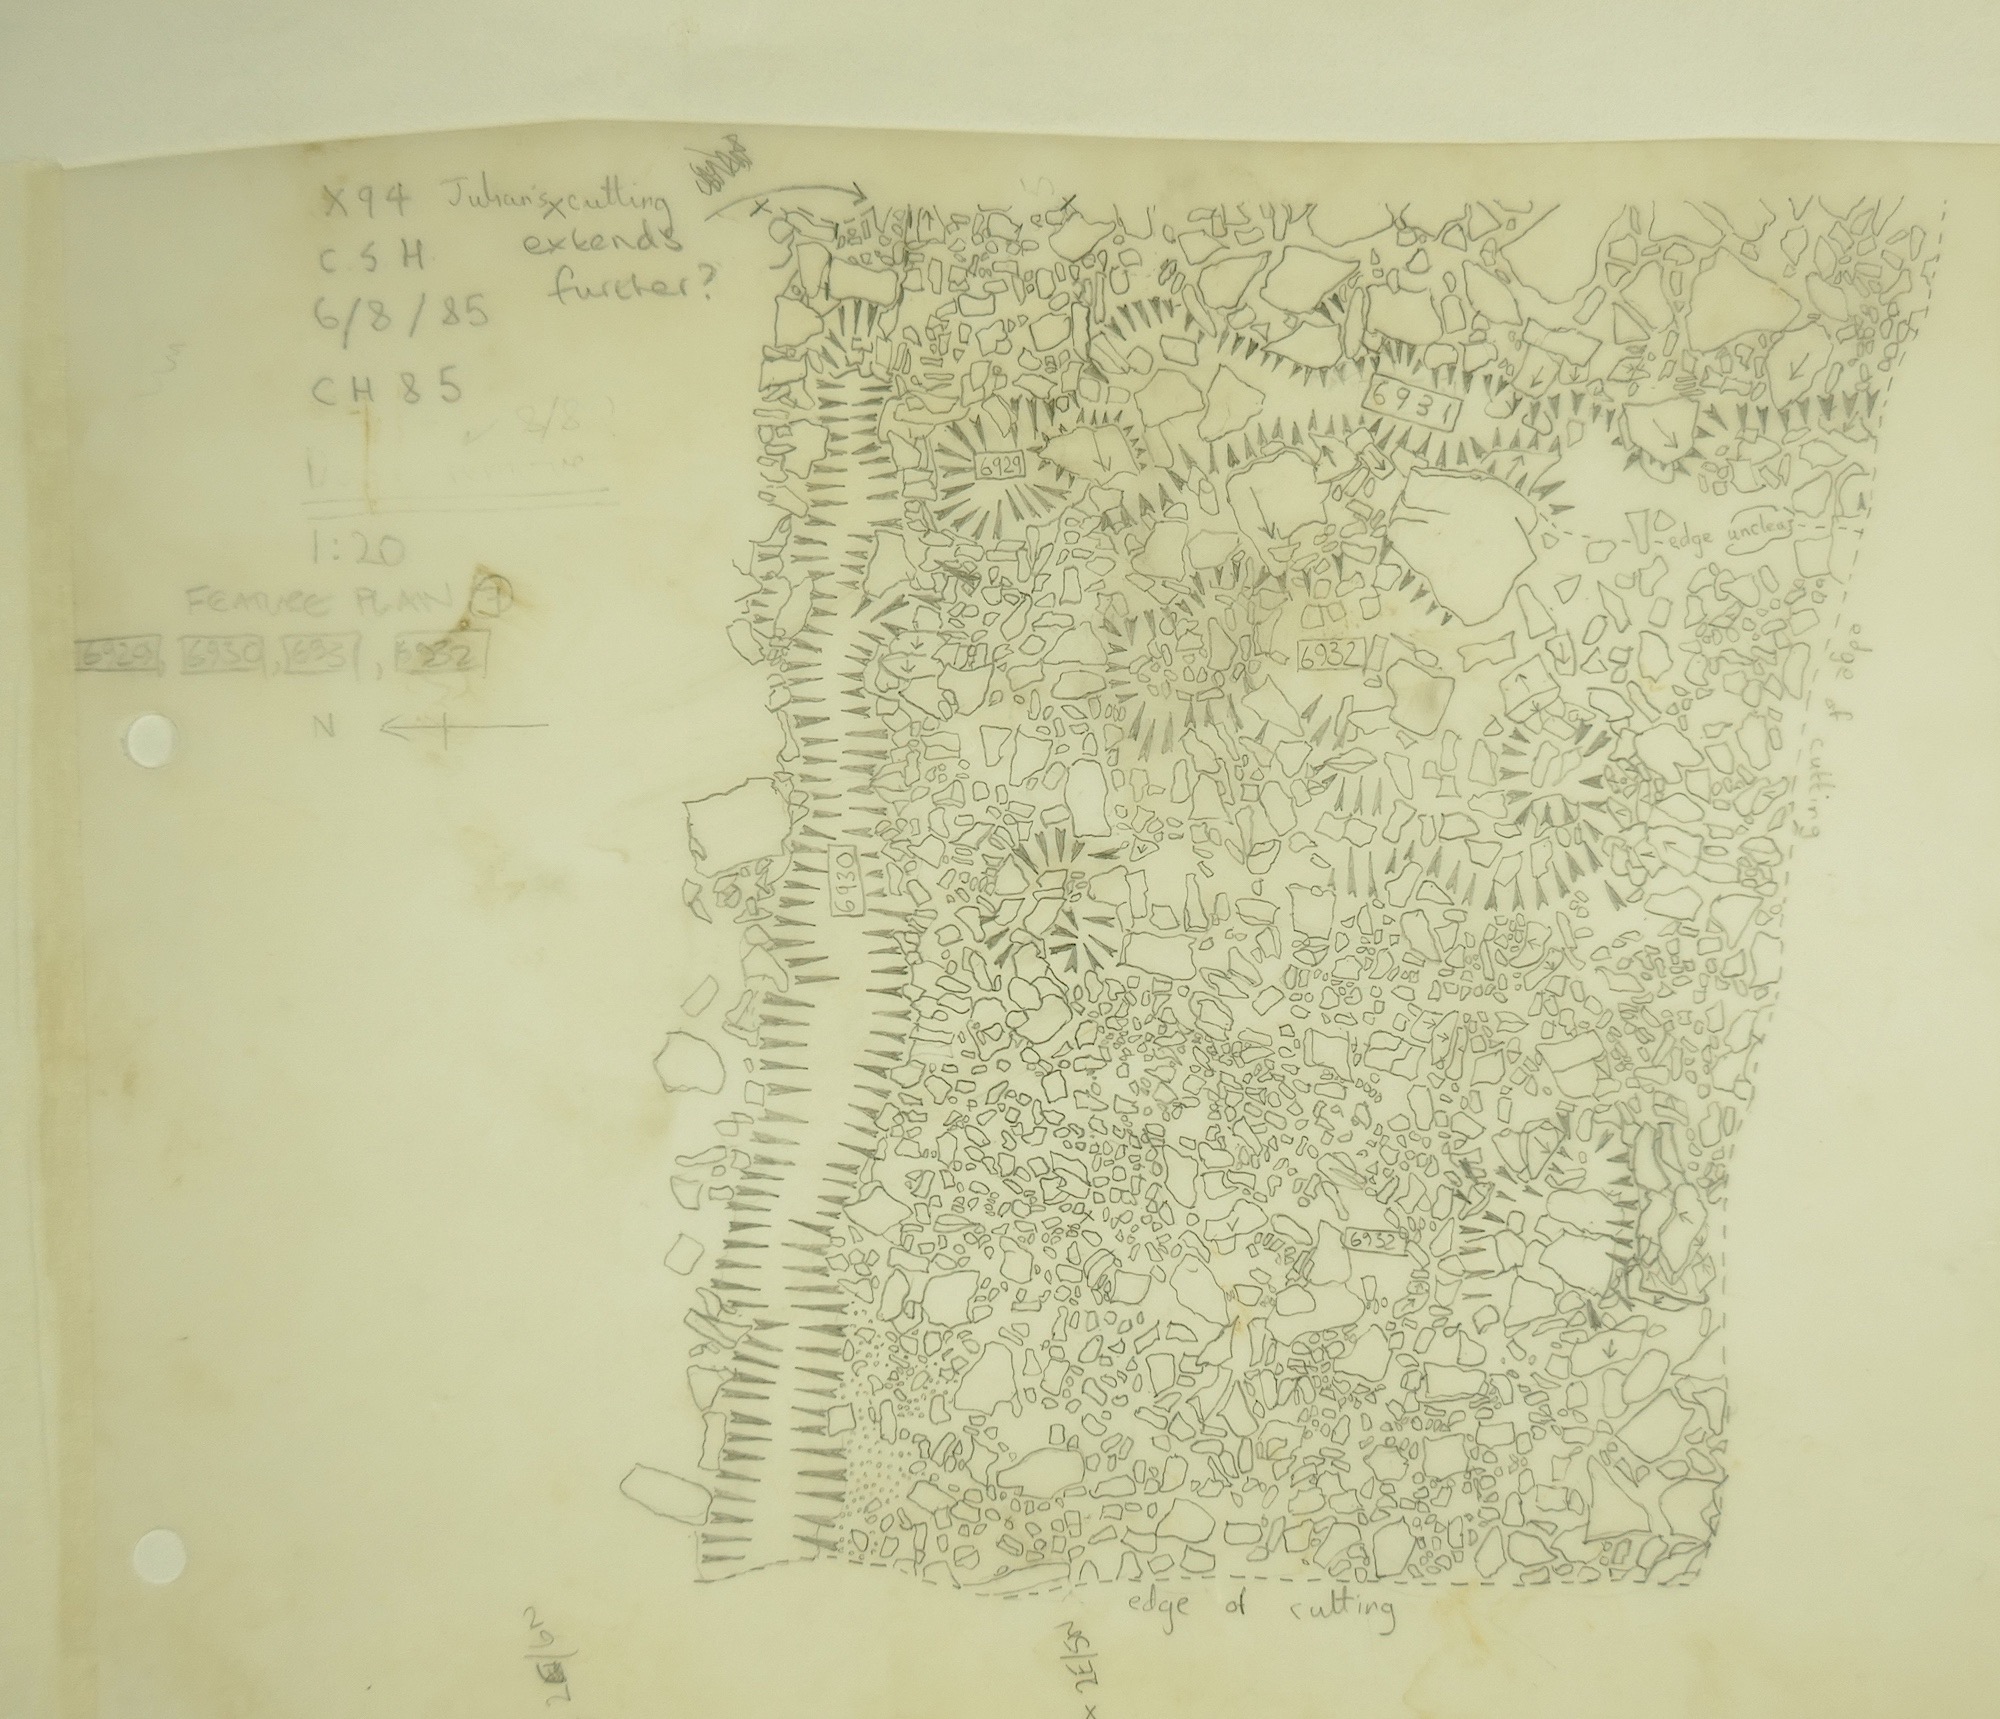 X94 Julian's cutting
extends
further?
CSH
6/8/85
CH 85
8/8?
1:20
FEATURE PLAN 7
6929, 6930, 6931, 6932
N
6931
6929
edge unclear
6932
edge of cutting
6930
6932
edge of cutting